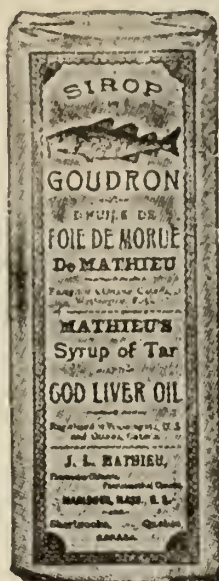 SIROP
GOUDRON
D'HUILE DE
FOIE DE MORUE
De MATHIEU
MATHIEU'S
Syrup of Tar
COD LIVER OIL
J. L. MATHIEU,
MARLBORO, MASS., U. S.
Sherbrooke, Quebec,
CANADA.